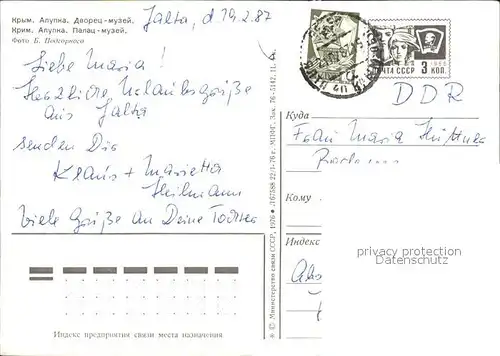 Крым. Алупка. Дворец-музей.
Крим. Алупка. Палац-музей.
Фото Б. Подгорного
Jalta, d 19.2.87
Liebe Maria!
Herzliche Urlaubsgrüße
aus Jalta
senden Dir
Klaus + Marietta
Heilmann
Viele Grüße an Deine Tochter
Индекс предприятия связи места назначения
© Министерство связи СССР, 1976 • Л67588 22/I-76 г. МПФГ. Зак. 76-5142. 11.
ПОЧТА СССР 3 КОП.
1966
DDR
Куда
Frau Maria
Кому
Индекс
privacy protection
Datenschutz